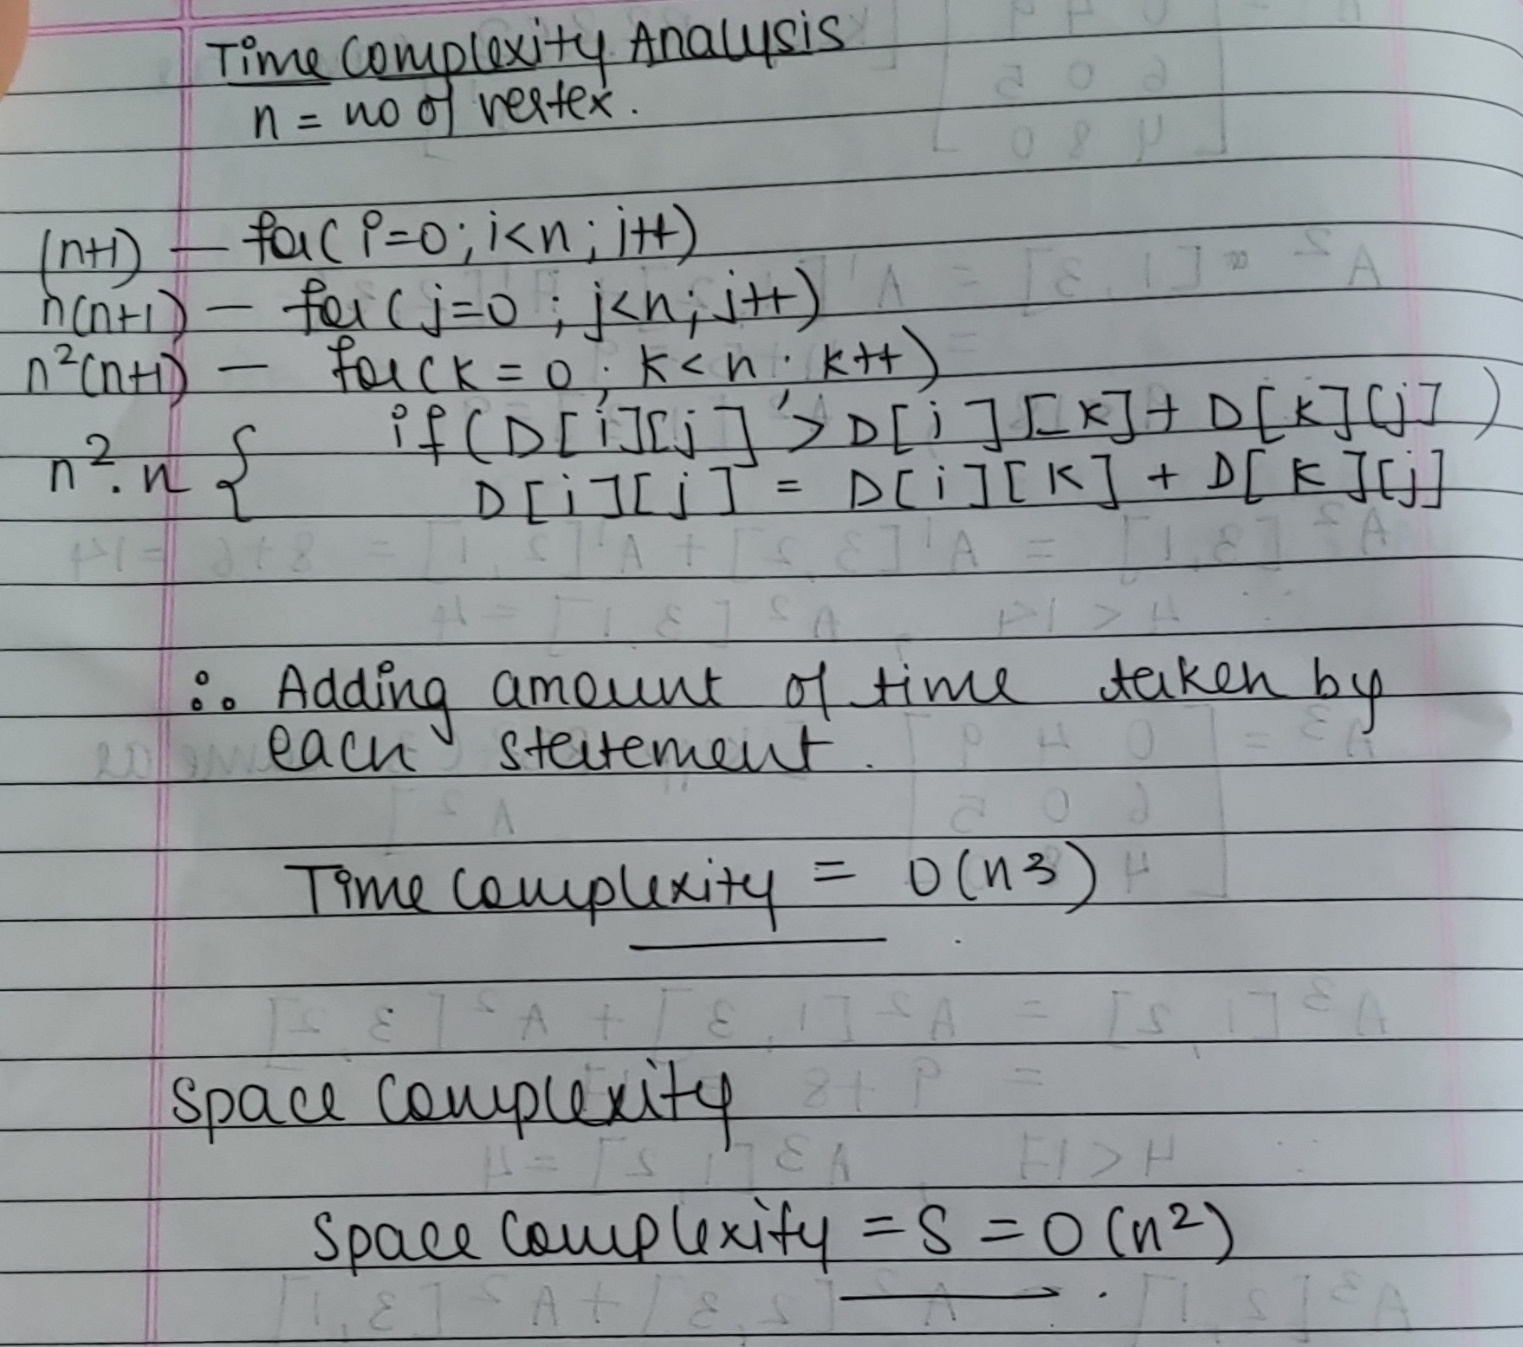 Time Complexity Analysis
n = no of vertex.
(n+1) — for( i=0; i<n; i++)
n(n+1) — for (j=0 ; j<n; j++)
n²(n+1) — for(k = 0; k<n; k++)
if(D[i][j] > D[i][k]+ D[k][j])
n².n { D[i][j] = D[i][k] + D[k][j]
∴ Adding amount of time taken by
each statement.
Time complexity = O(n3)
Space complexity
Space complexity = S = O(n²)